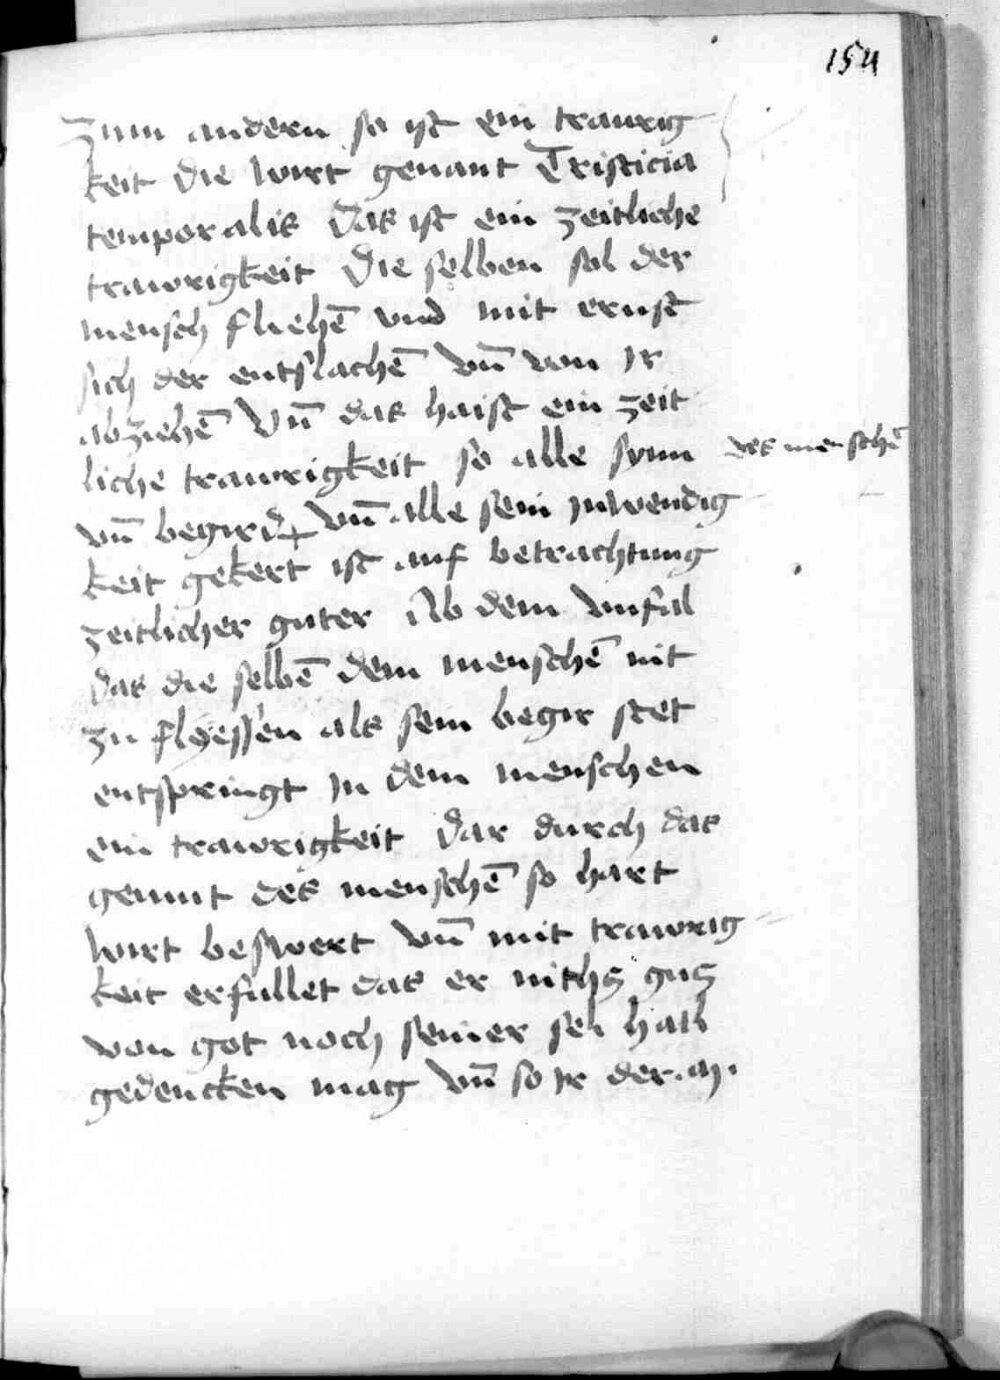 154
zum andern so ist ein traurig
keit die wirt genant Tristicia
temporalis Das ist ein zeitliche
trawrigkeit Die selben sol der
mensch fliehē vnd mit ernst
sich der entslachē vn̄ von Ir
abziehē Vn̄ das haist ein zeit
liche trawrigkeit so alle synn des menschē
vn̄ begird + vn̄ alle sein Inwendig
keit gekert ist auf betrachtung
zeitlicher guter Ab dem vnfal
Das die selbē dem menschē nit
zu flyessen als sein begir stet
entspringt In dem menschen
ein trawrigkeit Dar durch das
gemut des menschē so hart
wirt beswert vn̄ mit trawrig
keit erfullet das er nithß guß
von got noch seiner sel hail
gedencken mag vn̄ so Ir der